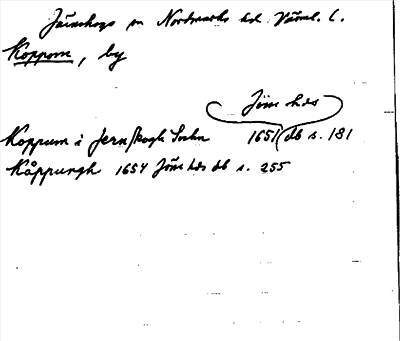 Järnskogs sn Nordmarks hd. Värml. l.
Koppom, by
Jöss hds
Koppum i Jernskogh Sochn 1651 db s. 181
Kåppungh 1654 Jöss hds db s. 255